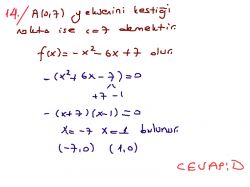 14./ A(0,7) y eksenini kestiği
nokta ise c=7 demektir.
f(x) = -x² - 6x + 7 olur.
-(x² + 6x - 7) = 0
+7 -1
-(x+7)(x-1) = 0
x = -7 x = 1 bulunur.
(-7,0) (1,0)
CEVAP: D